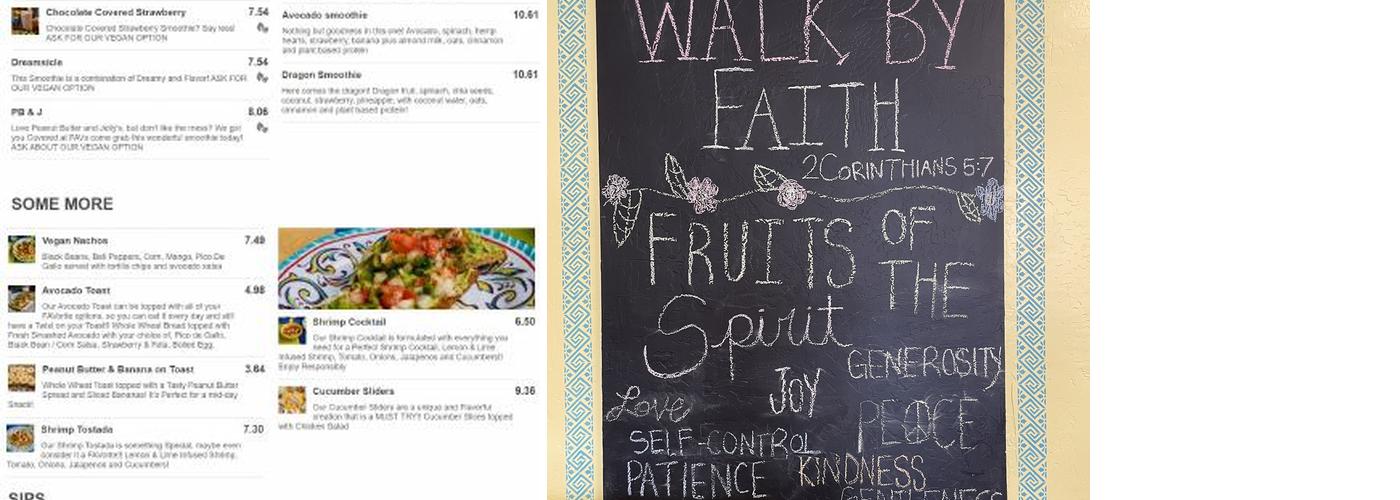 Chocolate Covered Strawberry 7.54
Chocolate Covered Strawberry Smoothie? Say less!
ASK FOR OUR VEGAN OPTION
Dreamsicle 7.54
This Smoothie is a combination of Dreamy and Flavor! ASK FOR
OUR VEGAN OPTION
PB & J 8.06
Love Peanut Butter and Jelly's, but don't like the mess? We got
you Covered at FAVs come grab this wonderful smoothie today!
ASK ABOUT OUR VEGAN OPTION
Avocado smoothie 10.61
Nothing but goodness in this one! Avocado, spinach, hemp
hearts, strawberry, banana plus almond milk, oats, cinnamon
and plant based protein
Dragon Smoothie 10.61
Here comes the dragon! Dragon fruit, spinach, chia seeds,
coconut, strawberry, pineapple, with coconut water, oats,
cinnamon and plant based protein!
SOME MORE
Vegan Nachos 7.49
Black Beans, Bell Peppers, Corn, Mango, Pico De
Gallo served with tortilla chips and avocado salsa
Avocado Toast 4.98
Our Avocado Toast can be topped with all of your
FAVorite options, so you can eat it every day and still
have a Twist on your Toast!! Whole Wheat Bread topped with
Fresh Smashed Avocado with your choice of, Pico de Gallo,
Black Bean / Corn Salsa, Strawberry & Feta, Boiled Egg.
Peanut Butter & Banana on Toast 3.64
Whole Wheat Toast topped with a Tasty Peanut Butter
Spread and Sliced Bananas! It's Perfect for a mid-day
Snack!
Shrimp Tostada 7.30
Our Shrimp Tostada is something Special, maybe even
consider it a FAVorite!! Lemon & Lime infused Shrimp,
Tomato, Onions, Jalapenos and Cucumbers!
Shrimp Cocktail 6.50
Our Shrimp Cocktail is formulated with everything you
need for a Perfect Shrimp Cocktail, Lemon & Lime
infused Shrimp, Tomato, Onions, Jalapenos and Cucumbers!!
Enjoy Responsibly
Cucumber Sliders 9.36
Our Cucumber Sliders are a unique and Flavorful
creation that is a MUST TRY!! Cucumber Slices topped
with Chicken Salad
SIPS
WALK BY
FAITH
2CORINTHIANS 5:7
FRUITS OF
THE
Spirit
GENEROSITY
JOY
Love
PEACE
SELF-CONTROL
PATIENCE
KINDNESS
GENTLENESS